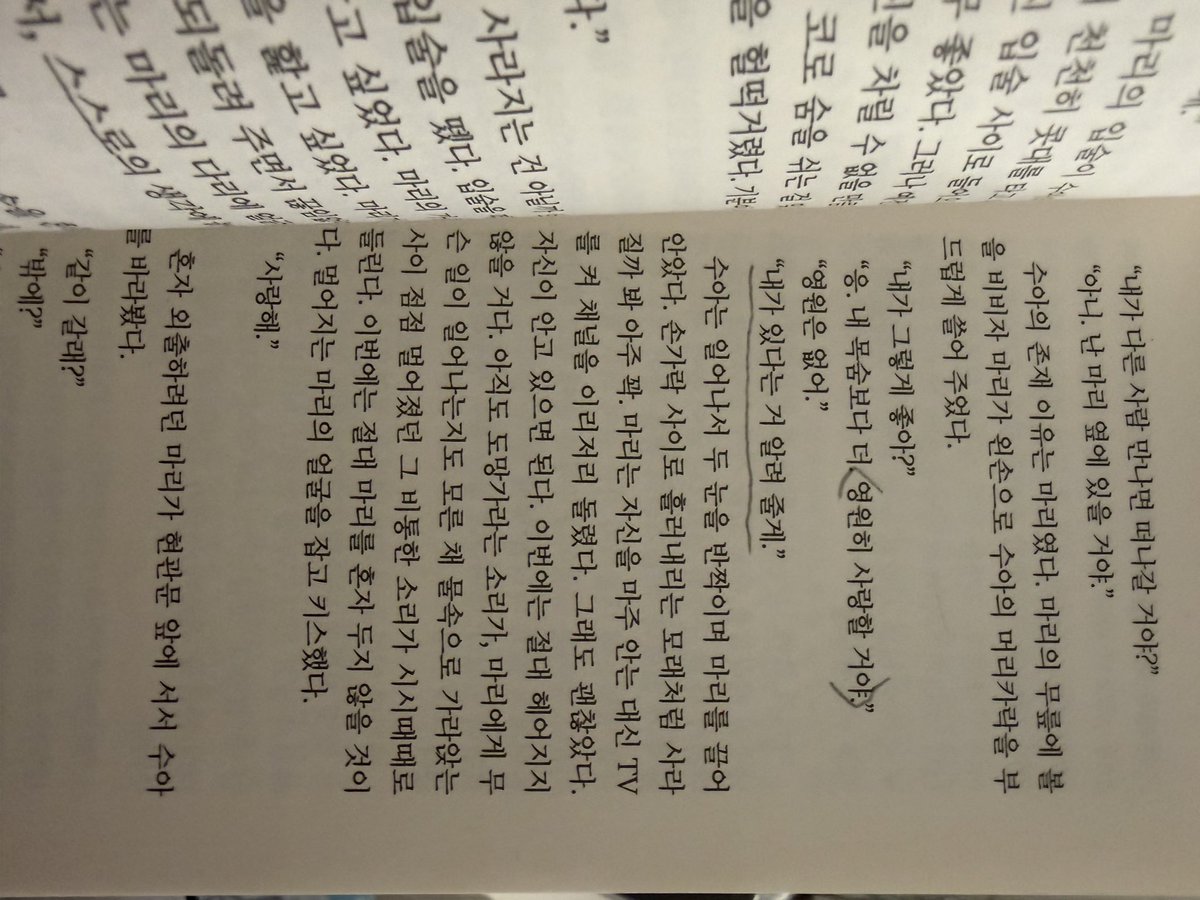 마리의 입술이
천천히 콧대를
입술 사이로
좋았다. 그러나
차릴 수 없을
코로 숨을 쉬는
을 헐떡거렸다.
다.”
사라지는 건 아닐까
입술을 뗐다. 입술을
고 싶었다. 마리의
을 핥고 싶었다.
되돌려 주면서
는 마리의 다리에
서, 스스로의 생각에
“내가 다른 사람 만나면 떠나갈 거야?”
“아니. 난 마리 옆에 있을 거야.”
수아의 존재 이유는 마리였다. 마리의 무릎에 볼
을 비비자 마리가 왼손으로 수아의 머리카락을 부
드럽게 쓸어 주었다.
“내가 그렇게 좋아?”
“응. 내 목숨보다 더. 영원히 사랑할 거야.”
“영원은 없어.”
“내가 있다는 거 알려 줄게.”
수아는 일어나서 두 눈을 반짝이며 마리를 끌어
안았다. 손가락 사이로 흘러내리는 모래처럼 사라
질까 봐 아주 꽉. 마리는 자신을 마주 안는 대신 TV
를 켜 채널을 이리저리 돌렸다. 그래도 괜찮았다.
자신이 안고 있으면 된다. 이번에는 절대 헤어지지
않을 거다. 아직도 도망가라는 소리가, 마리에게 무
슨 일이 일어나는지도 모른 채 물속으로 가라앉는
사이 점점 멀어졌던 그 비통한 소리가 시시때때로
들린다. 이번에는 절대 마리를 혼자 두지 않을 것이
다. 멀어지는 마리의 얼굴을 잡고 키스했다.
“사랑해.”
혼자 외출하려던 마리가 현관문 앞에 서서 수아
를 바라봤다.
“같이 갈래?”
“밖에?”